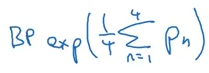 BP exp(1/4 ∑_{n=1}^{4} Pn)